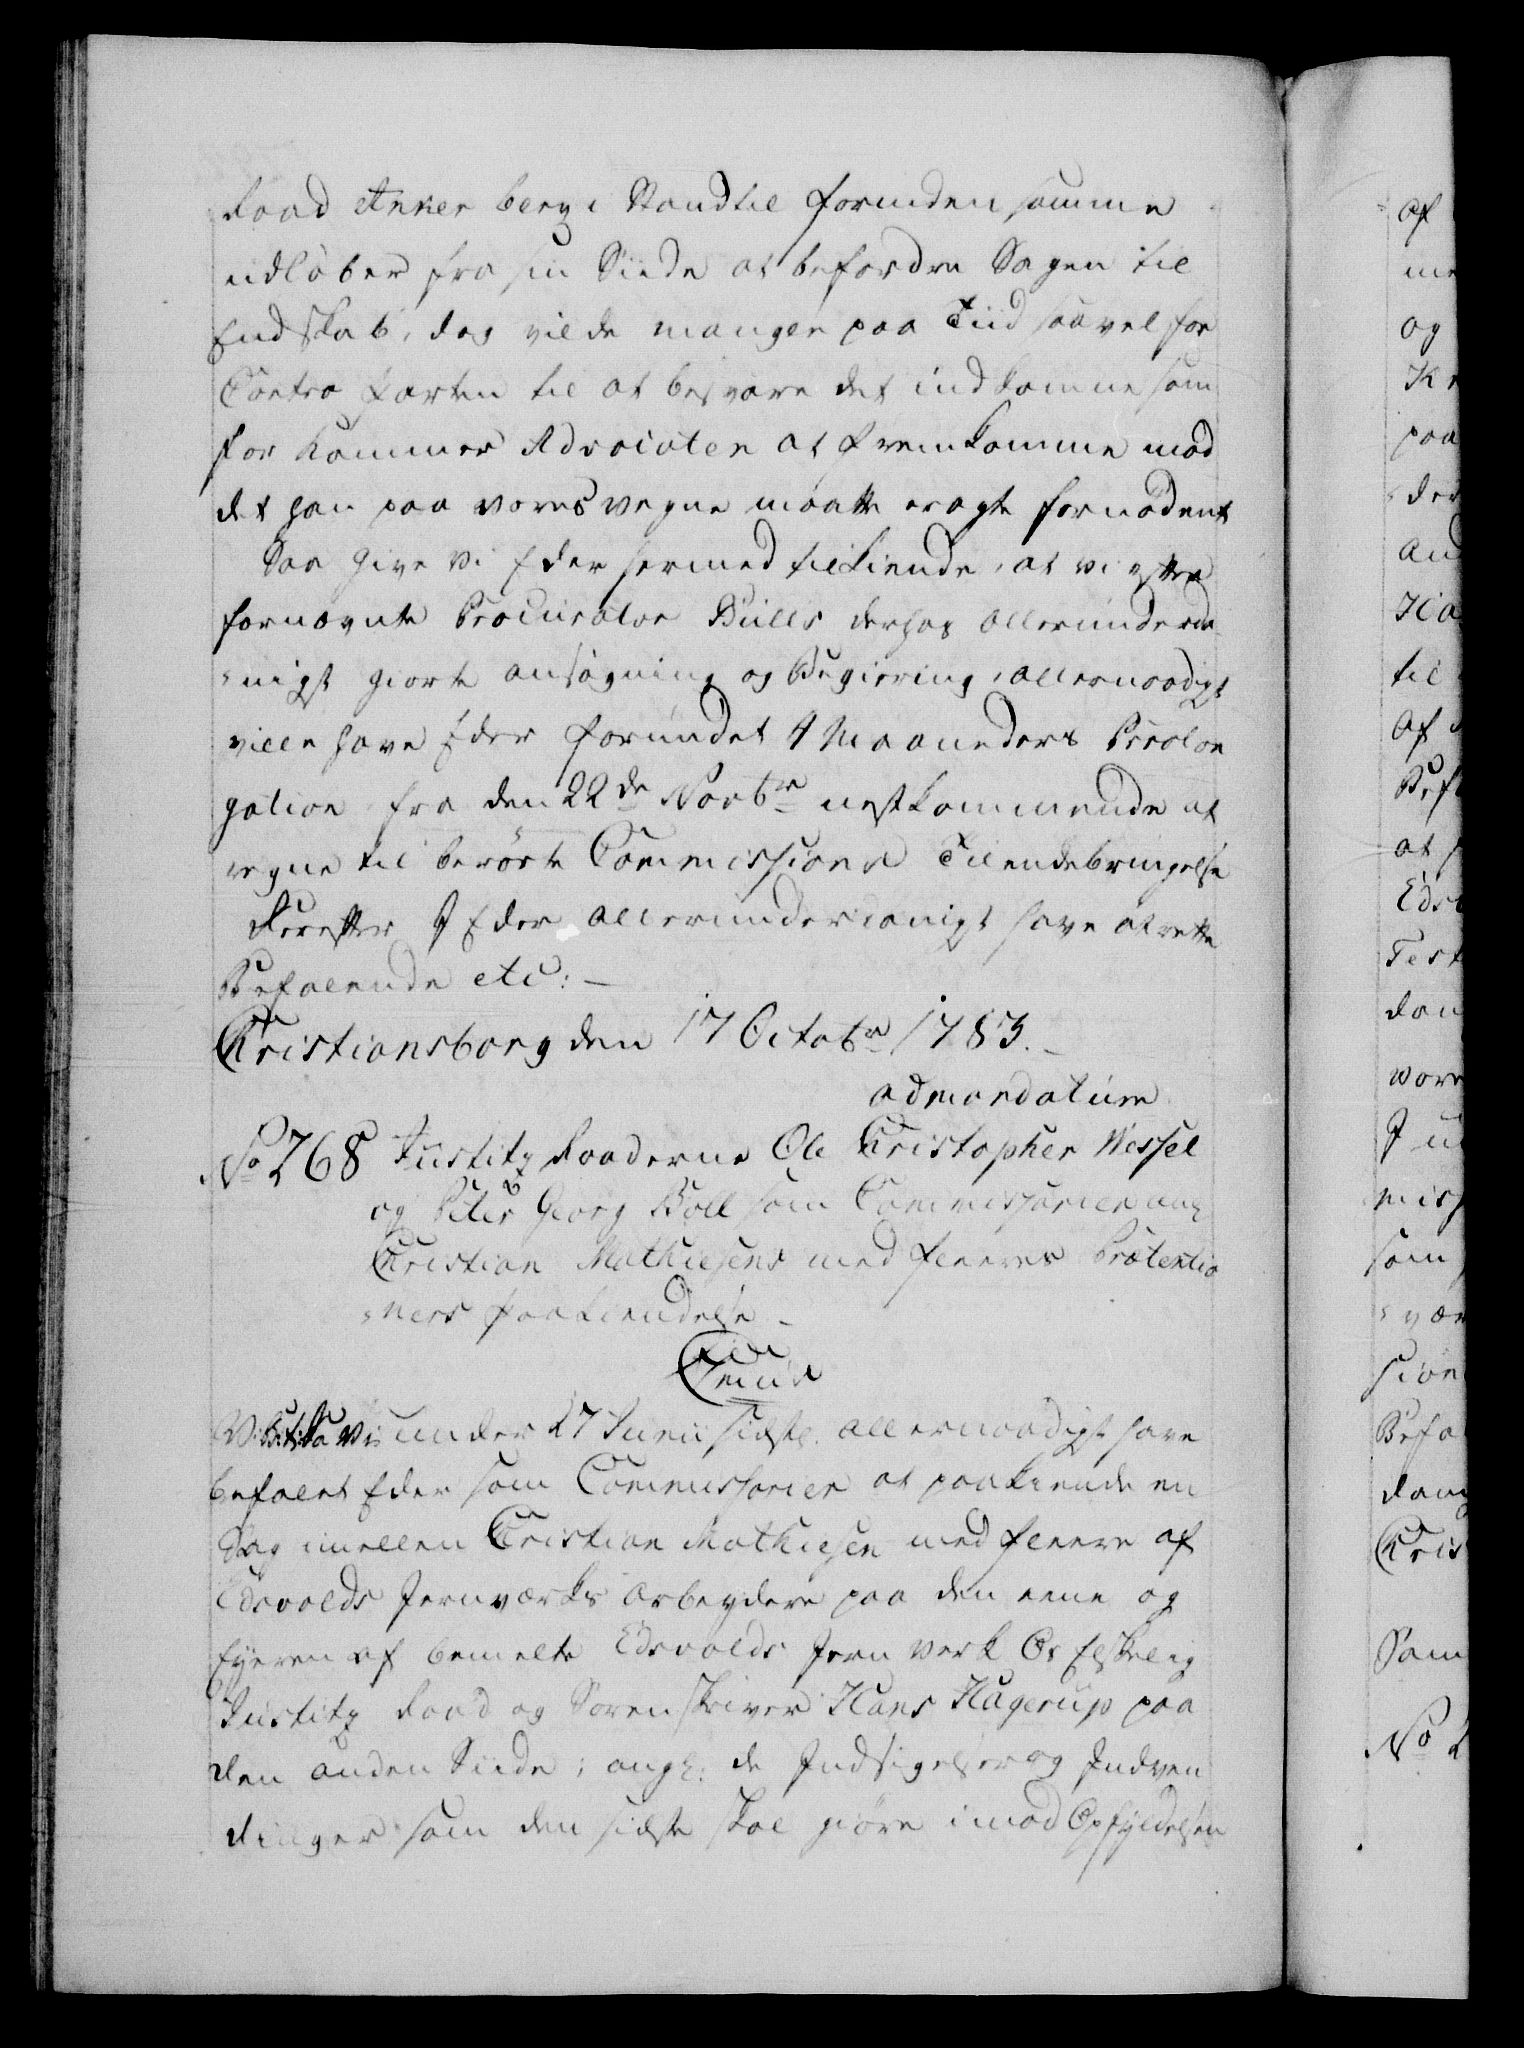 Raad Anker berg i Stand til forinden samme
udløber fra sin Siide at befordre Sagen til
Endskab, dog vilde mangen paa Tiid saavel for
Contra Parten til at besvare det indkomne som
for Kammer Advocaten at fremkomme med
det han paa vores vegne maatte eragte fornødent
Saa give vi Eder hermed tilkiende, at vi efter
fornævnte Procurator Bulls derhos allerunderda-
nigst giorte ansøgning og Begiering, allernaadigst
ville have Eder forundet 4 Maaneders Prolon
gation fra den 22de Novbr nestkommende at
regne til berørte Commissions Tilendebringelse
Derefter I Eder allerunderdanigst have at rette
Befalende etc: —
Cristiansborg den 17 Octobr 1783. —
ad mandatum
No 268 Justitz Raaderne Ole Cristopher Wessel
og Peter Georg Boll som Commissarier ang
Cristian Mathiesens med fleeres Prætentio
ners Paakiendelse —
V: G: T: Da Vi under 27 Junii sidstl. allernaadigst have
befalet Eder som Commissarier at paakiende en
Sag imellem Cristian Mathiesen med fleere af
Edsvolds Jernværks Arbeydere paa den eene og
Eyeren af bemelte Edsvolds Jern Verk Os Elskelig
Justitz Raad og Sorenskriver Hans Hagerup paa
den anden Siide; angl: de Indsigelser og Indven
dinger som den sidste skal giøre imod Opfyldelsen